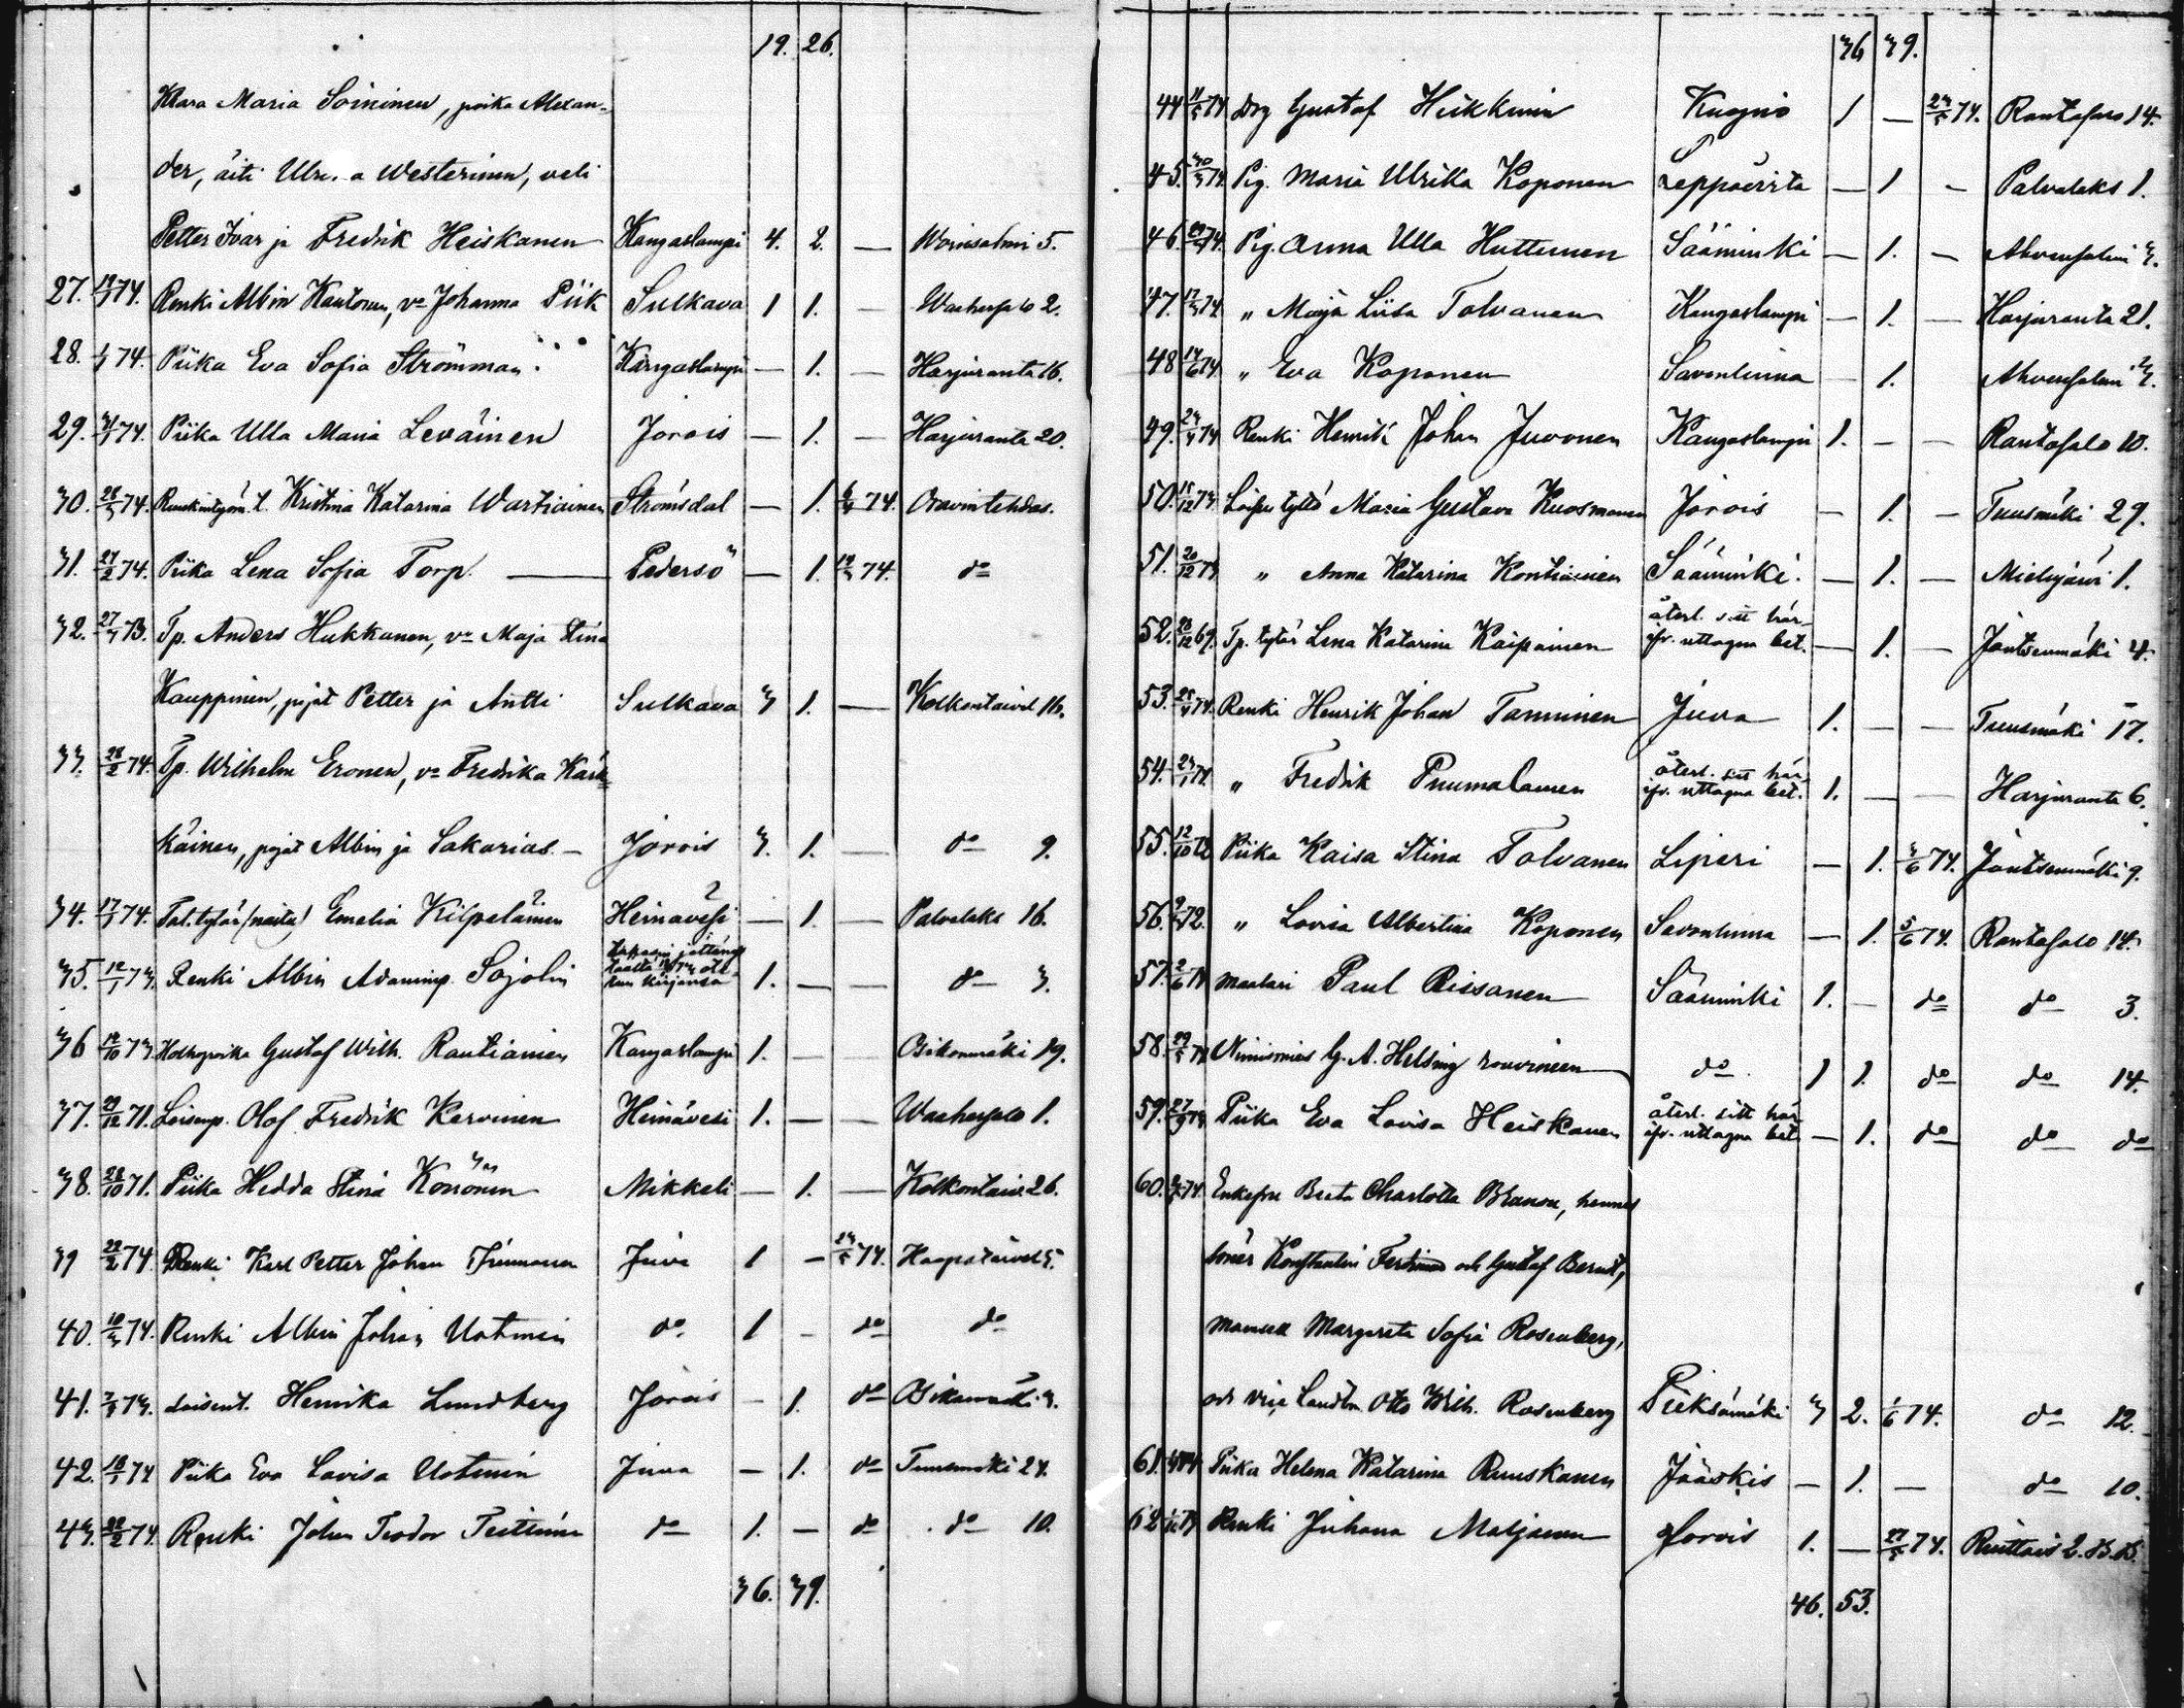 19. 26.
Klara Maria Soininen, poika Alexan-
der, äiti Westerinen, veli
Petter Ivar ja Fredrik Heiskanen Kangaslampi 4. 2. — 5.
27. 74. Renki Albin Kautonen, vo Johanna Piik Sulkava 1 1. — Waahersalo 2.
28. 74. Piika Eva Sofia Strömman Kangaslampi — 1. — Harjuranta 16.
29. 74. Piika Ulla Maria Leväinen Jorois — 1. — Harjuranta 20.
30. 28/3 74. Kristina Katarina Wartiainen Strömsdal — 1. 74. Oravin tehdas.
31. 27/2 74. Piika Lena Sofia Torp. — Pedersö — 1. 74. do
32. 27/3 73. Tp. Anders Hukkanen, vo Maja Stina
Kauppinen, pojat Petter ja Antti Sulkava 3 1. — Kolkontaival 16.
33. 28/2 74. Tp. Wilhelm Eronen, vo Fredrika Kärk-
käinen, pojat Albin ja Sakarias. — Jorois 3. 1. — do 9.
34. 17/1 74. Tal. tytär (naitu) Emelia Kilpeläinen Heinävesi — 1. — Palvalaks 16.
35. 12/1 73. Renki Albin Adaminp. Sojolin kirjansa 1. — — do 3.
36 12/10 73. Gustaf Wilh. Rautiainen Kangaslampi 1. — — Osikonmäki 19.
37. 29/12 71. Loisenp. Olof Fredrik Kervinen Heinävesi 1. — — Waahersalo 1.
38. 28/10 71. Piika Hedda Stina Könönen Mikkeli — 1. — Kolkontaiv. 26.
39 22/2 74. Renki Karl Petter Johan Juva 1 — 23/5 74. Haapataival
40. 10/3 74. Renki Albin Johan Uotinen do 1 — do do
41. 73. Loisent. Henrika Lundberg Jorois — 1. do Osikonmäki 3.
42. 18/1 74 Piika Eva Lovisa Uotinen Juva — 1. do Tuusmäki 24.
43. 22/2 74. Renki Johan Teodor Teittinen do 1. — do do 10.
36. 39.
36 39.
44 11/5 74 Drg Gustaf Heikkinen Kuopio 1 — 23/5 74. Rantasalo 14.
45. 74. Pig. Maria Ulrika Koponen Leppävirta — 1 — Palvalaks 1.
46. 74. Pig. Anna Ulla Huttunen Sääminki — 1. — Ahvensalmi 3.
47. 74. " Maija Liisa Tolvanen Kangaslampi — 1. — Harjuranta 21.
48 14/6 74. " Eva Koponen Savonlinna — 1. Ahvensalmi 3.
49. 74 Renki Henrik Johan Juvonen Kangaslampi 1. — — Rantasalo 10.
50. 15/12 73. Loisen tyttö Maria Gustava Kuosmanen Jorois — 1. — Tuusmäki 29.
51. 20/12 73 " Anna Katarina Kontiainen Sääminki. — 1. — Mielujärvi 1.
52. 28/12 69. Tp. tytär Lena Katarina Kaipainen återl. sitt här-
ifr. uttagna bet. — 1. — Jäntsenmäki 4.
53. 74. Renki Henrik Johan Tanninen Juva 1. — — Tuusmäki 17.
54. 74. " Fredrik Puumalainen återl. sitt här-
ifr. uttagna bet. 1. — — Harjuranta 6.
55. 12/10 72 Piika Kaisa Stina Tolvanen Liperi — 1. 3/6 74. Jäntsenmäki 9.
56. 72. " Lovisa Albertina Koponen Savonlinna — 1. 5/6 74. Rantasalo 14.
57. 2/6 74 Maalari Paul Rissanen Sääminki 1. — do do 3.
58. 29/5 74 Nimismies G. A. Helsing rouvineen do 1 1. do do 14.
59. 27/9 73 Piika Eva Lovisa Heiskanen återl. sitt här-
ifr. uttagna bet — 1. do do do
60. 74. Enkefru Beata Charlotta Branon, hennes
söner Konstantin Ferdinand och Gustaf Berndt,
mamsell Margareta Sofia Rosenberg,
och vice landtm. Otto Wilh. Rosenberg Pieksämäki 3 2. 1/6 74. do 12.
61. 74 Piika Helena Katarina Ruuskanen Jääskis — 1. — do 10.
62 73 Renki Juhana Maljanen Jorois 1. — 27/5 74. 2.
46. 53.